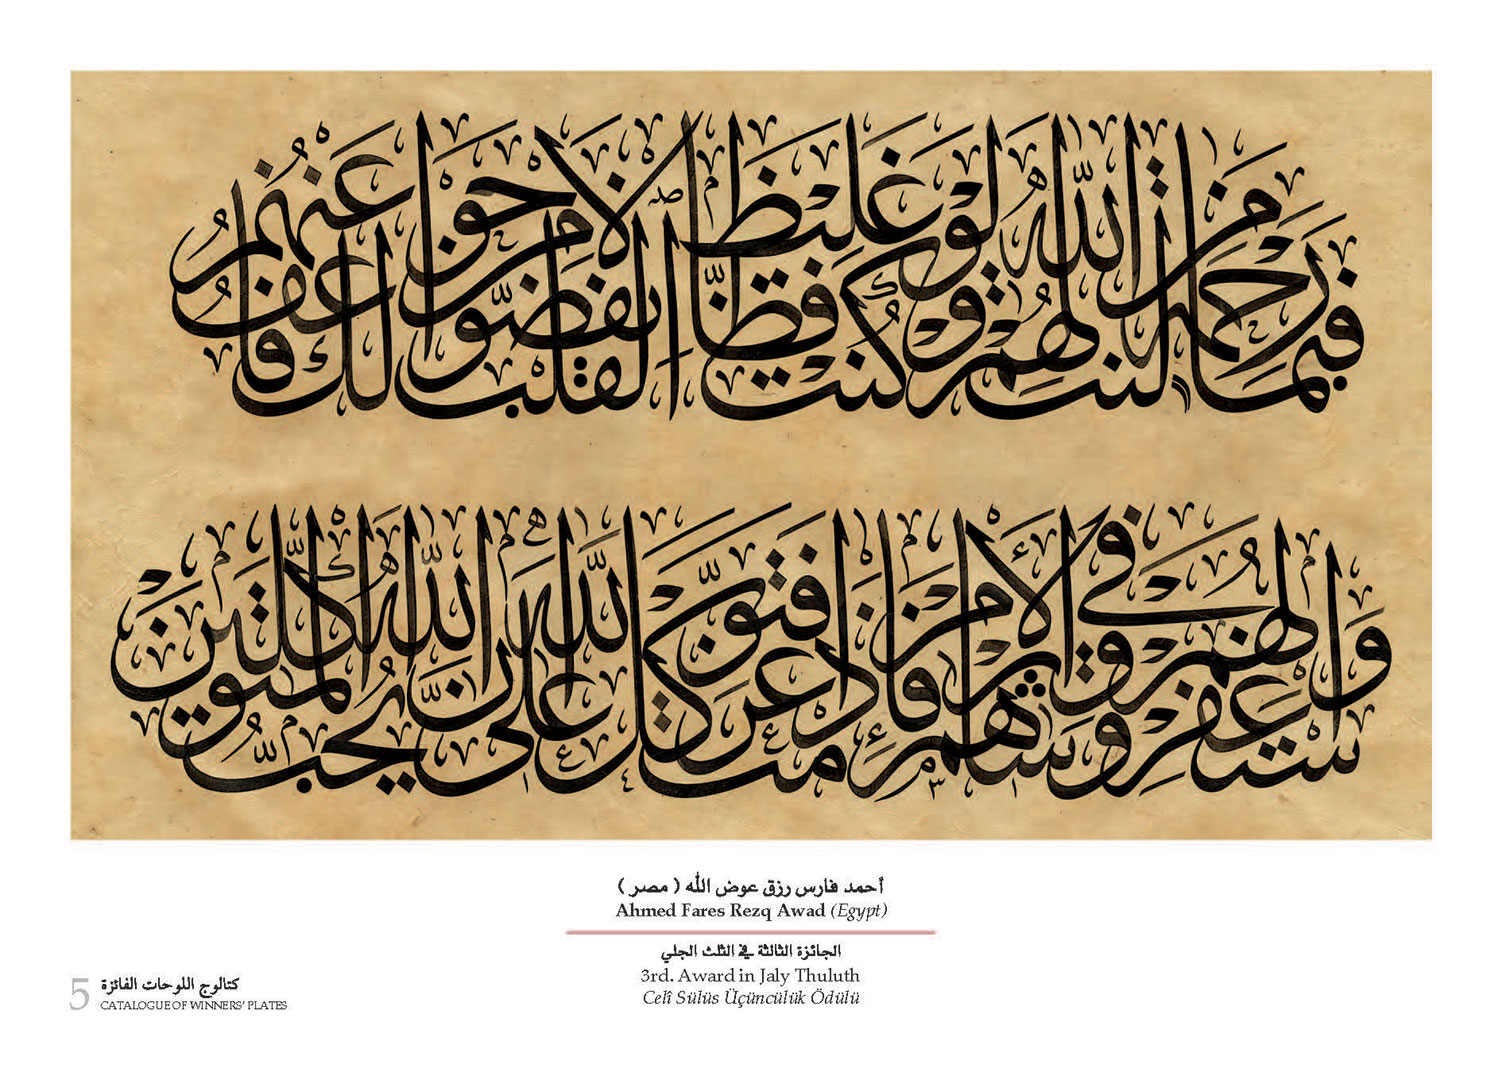 فبما رحمة من الله لنت لهم ولو كنت فظا غليظ القلب لانفضوا من حولك فاعف عنهم
واستغفر لهم وشاورهم في الأمر فإذا عزمت فتوكل على الله إن الله يحب المتوكلين
أحمد فارس رزق عوض الله ( مصر )
Ahmed Fares Rezq Awad (Egypt)
الجائزة الثالثة في الثلث الجلي
3rd. Award in Jaly Thuluth
Celî Sülüs Üçüncülük Ödülü
5
كتالوج اللوحات الفائزة
CATALOGUE OF WINNERS' PLATES